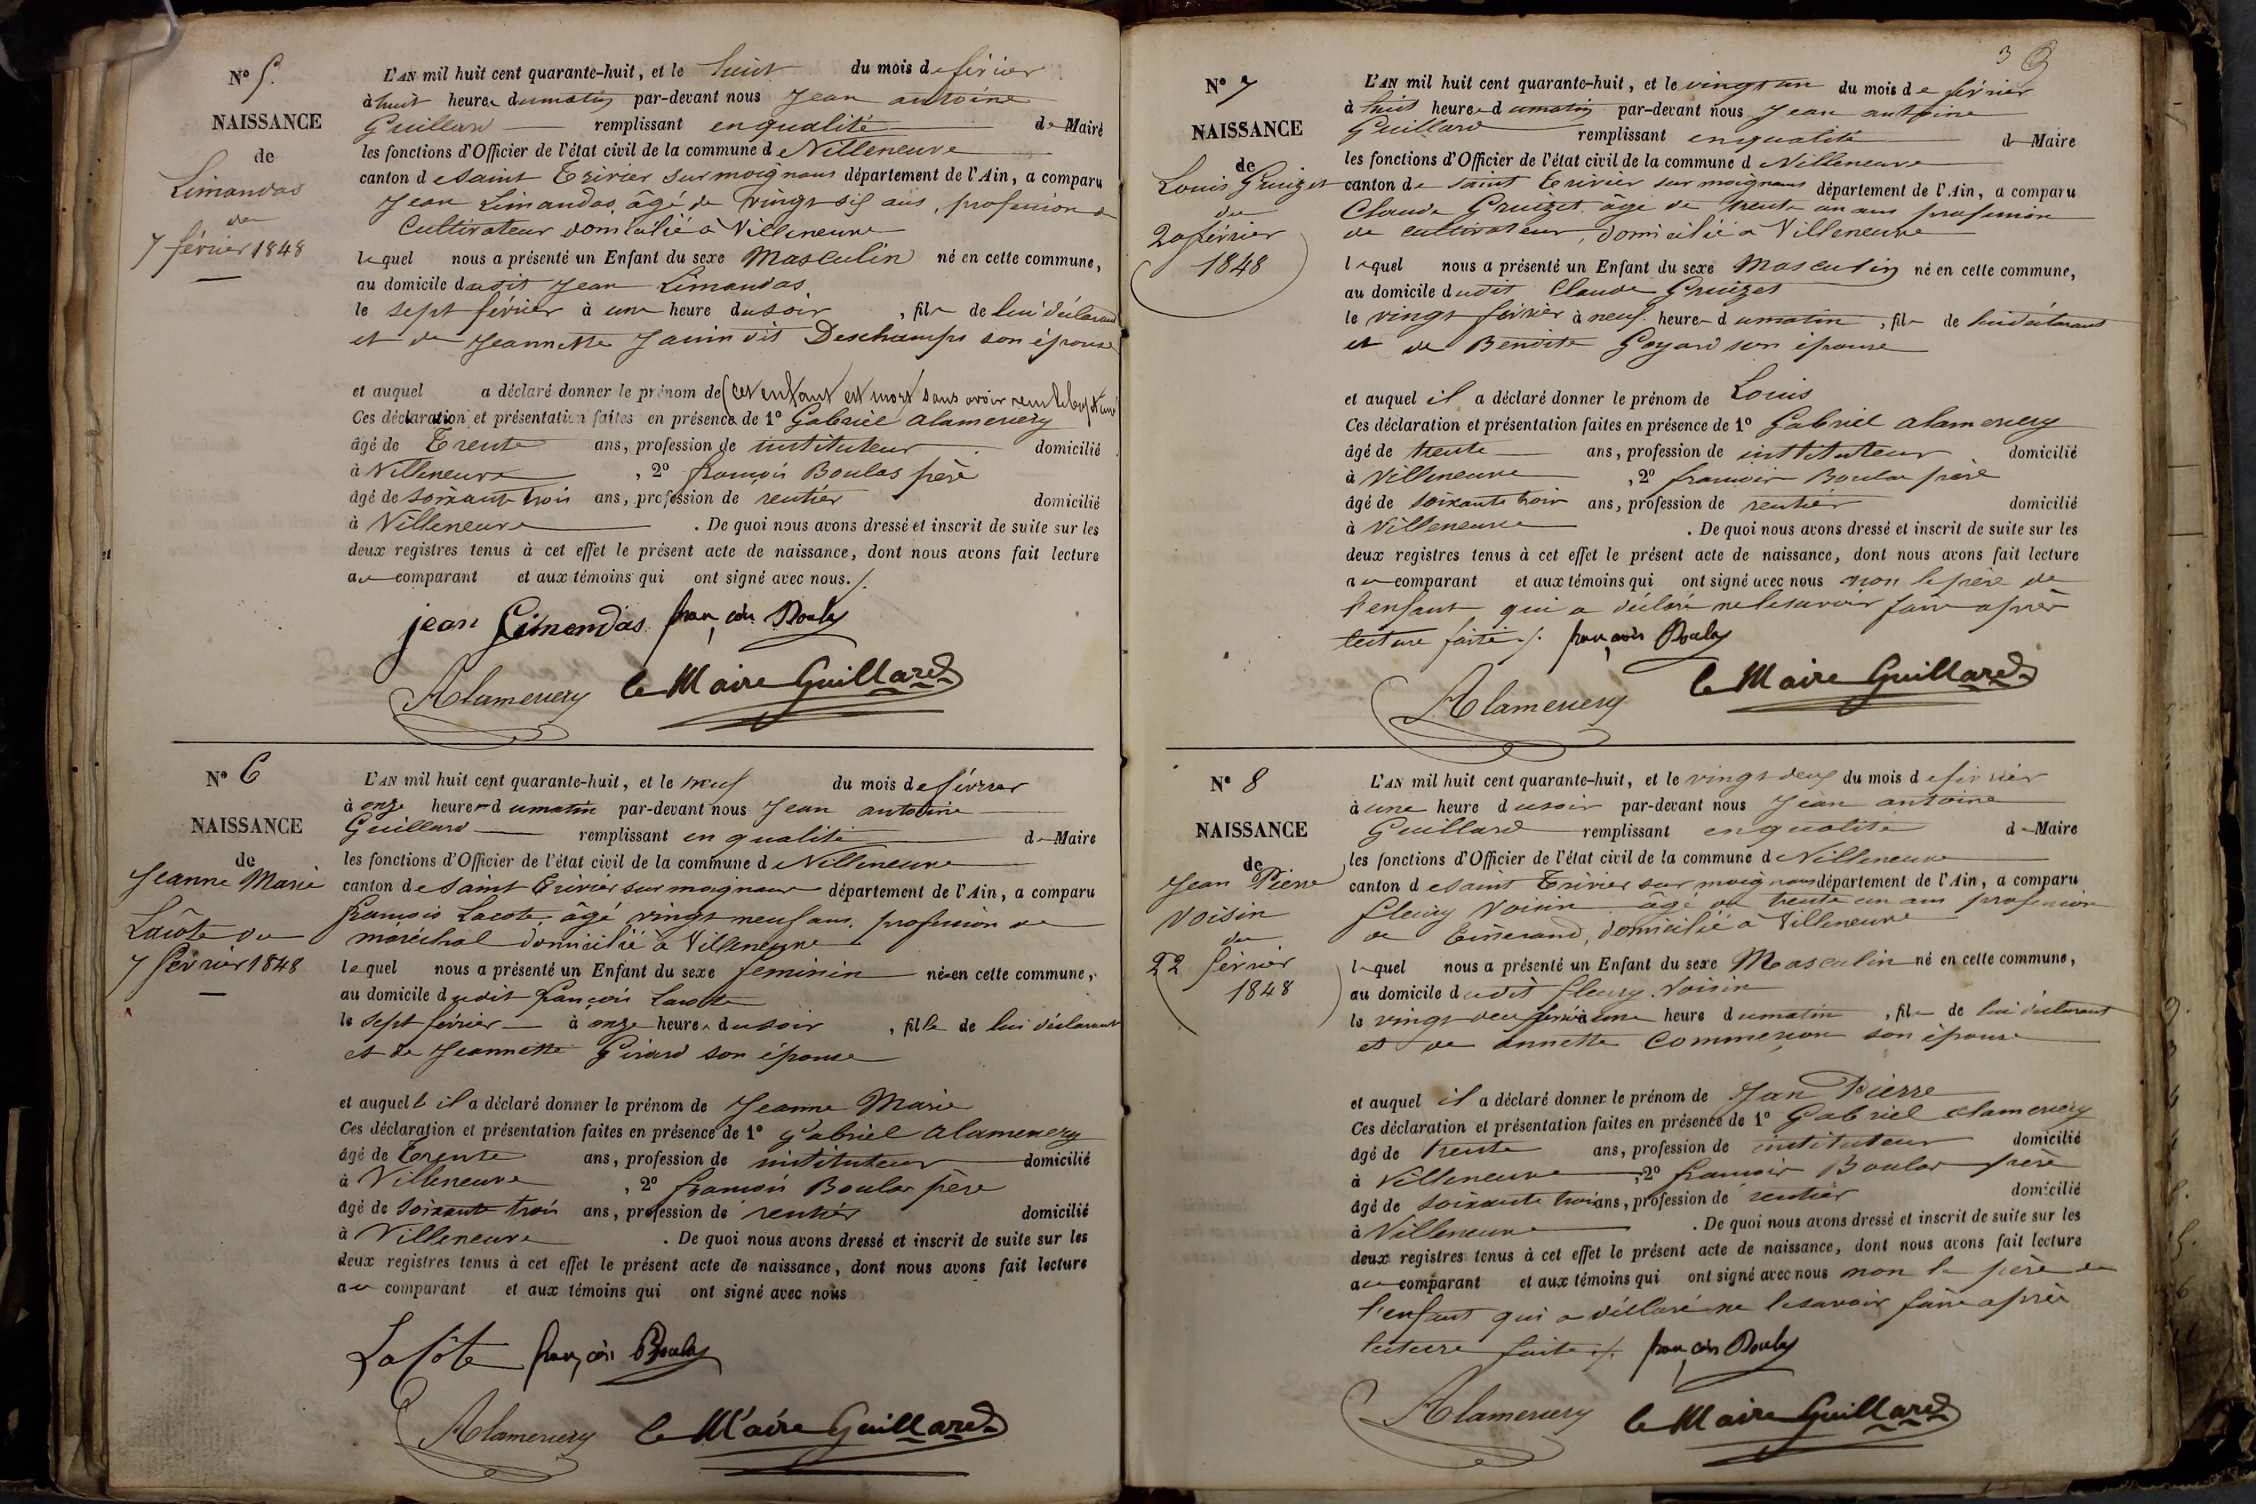 N° 5.
NAISSANCE
de
Limandas
du
7 février 1848
L'AN mil huit cent quarante-huit, et le huit du mois de février
à huit heures du matin par-devant nous Jean antoine
Guillard remplissant en qualité de Maire
les fonctions d'Officier de l'état civil de la commune de Villeneuve
canton de Saint Trivier sur moignans département de l'Ain, a comparu
Jean Limandas, âgé de vingt six ans, profession de
Cultivateur domicilié à Villeneuve
lequel nous a présenté un Enfant du sexe Masculin né en cette commune,
au domicile dudit Jean Limandas
le sept février à une heure du soir, fils de lui déclarant
et de Jeannette Janin dit Deschamps son épouse
et auquel a déclaré donner le prénom de (cet enfant est mort sans avoir
Ces déclaration et présentation faites en présence de 1° Gabriel alamercery
âgé de Trente ans, profession de instituteur domicilié
à Villeneuve, 2° françois Boulas père
âgé de soixante trois ans, profession de rentier domicilié
à Villeneuve. De quoi nous avons dressé et inscrit de suite sur les
deux registres tenus à cet effet le présent acte de naissance, dont nous avons fait lecture
au comparant et aux témoins qui ont signé avec nous./.
jean Limandas françois Boulas
Alamercery le Maire Guillard
N° 6
NAISSANCE
de
Jeanne Marie
Lacôte du
7 février 1848
L'AN mil huit cent quarante-huit, et le neuf du mois de février
à onze heures du matin par-devant nous Jean antoine
Guillard remplissant en qualité de Maire
les fonctions d'Officier de l'état civil de la commune de Villeneuve
canton de Saint Trivier sur moignans département de l'Ain, a comparu
françois Lacote, âgé vingt neuf ans, profession de
maréchal domicilié à Villeneuve
lequel nous a présenté un Enfant du sexe feminin né en cette commune,
au domicile dudit françois Lacote
le sept février à onze heures du soir, fille de lui déclarant
et de Jeannette Girard son épouse
et auquel il a déclaré donner le prénom de Jeanne Marie
Ces déclaration et présentation faites en présence de 1° Gabriel alamercery
âgé de Trente ans, profession de instituteur domicilié
à Villeneuve, 2° françois Boulas père
âgé de soixante trois ans, profession de rentier domicilié
à Villeneuve. De quoi nous avons dressé et inscrit de suite sur les
deux registres tenus à cet effet le présent acte de naissance, dont nous avons fait lecture
au comparant et aux témoins qui ont signé avec nous
Lacôte françois Boulas
Alamercery le Maire Guillard
3
N° 7
NAISSANCE
de
Louis Gruizet
du
20 février
1848
L'AN mil huit cent quarante-huit, et le vingt un du mois de février
à huit heures du matin par-devant nous Jean antoine
Guillard remplissant en qualité de Maire
les fonctions d'Officier de l'état civil de la commune de Villeneuve
canton de saint trivier sur moignans département de l'Ain, a comparu
Claude Gruizet âgé de trente un ans profession
de cultivateur, domicilié à Villeneuve
lequel nous a présenté un Enfant du sexe Masculin né en cette commune,
au domicile dudit Claude Gruizet
le vingt février à neuf heures du matin, fils de lui déclarant
et de Benoite Goyard son épouse
et auquel il a déclaré donner le prénom de Louis
Ces déclaration et présentation faites en présence de 1° Gabriel alamercery
âgé de trente ans, profession de instituteur domicilié
à Villeneuve, 2° françois Boulas père
âgé de soixante trois ans, profession de rentier domicilié
à Villeneuve. De quoi nous avons dressé et inscrit de suite sur les
deux registres tenus à cet effet le présent acte de naissance, dont nous avons fait lecture
au comparant et aux témoins qui ont signé avec nous non le père de
l'enfant qui a déclaré ne le savoir faire après
lecture faite ./. françois Boulas
Alamercery le Maire Guillard
N° 8
NAISSANCE
de
Jean Pierre
Voisin
du
22 février
1848
L'AN mil huit cent quarante-huit, et le vingt deux du mois de février
à une heure du soir par-devant nous Jean antoine
Guillard remplissant en qualité de Maire
les fonctions d'Officier de l'état civil de la commune de Villeneuve
canton de saint Trivier sur moignans département de l'Ain, a comparu
fleury Voisin âgé de trente un ans profession
de Tisserand, domicilié à Villeneuve
lequel nous a présenté un Enfant du sexe Masculin né en cette commune,
au domicile dudit fleury Voisin
le vingt deux février à une heure du matin, fils de lui déclarant
et de annette Commerçon son épouse
et auquel il a déclaré donner le prénom de Jean Pierre
Ces déclaration et présentation faites en présence de 1° Gabriel alamercery
âgé de trente ans, profession de instituteur domicilié
à Villeneuve, 2° françois Boulas père
âgé de soixante trois ans, profession de rentier domicilié
à Villeneuve. De quoi nous avons dressé et inscrit de suite sur les
deux registres tenus à cet effet le présent acte de naissance, dont nous avons fait lecture
au comparant et aux témoins qui ont signé avec nous non le père de
l'enfant qui a déclaré ne le savoir faire après
lecture faite ./. françois Boulas
Alamercery le Maire Guillard